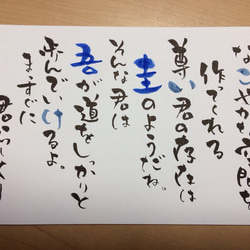 なごやかな空間を
作ってくれる
尊い君の存在は
圭のようだね。
そんな君は
吾が道をしっかりと
歩んでいけるよ。
まっすぐに
君らしく